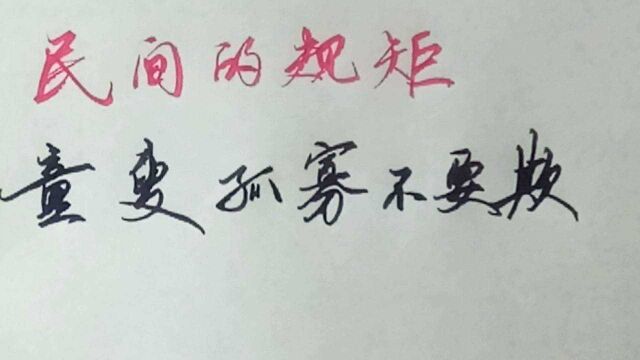 民间的规矩
童叟孤寡不要欺